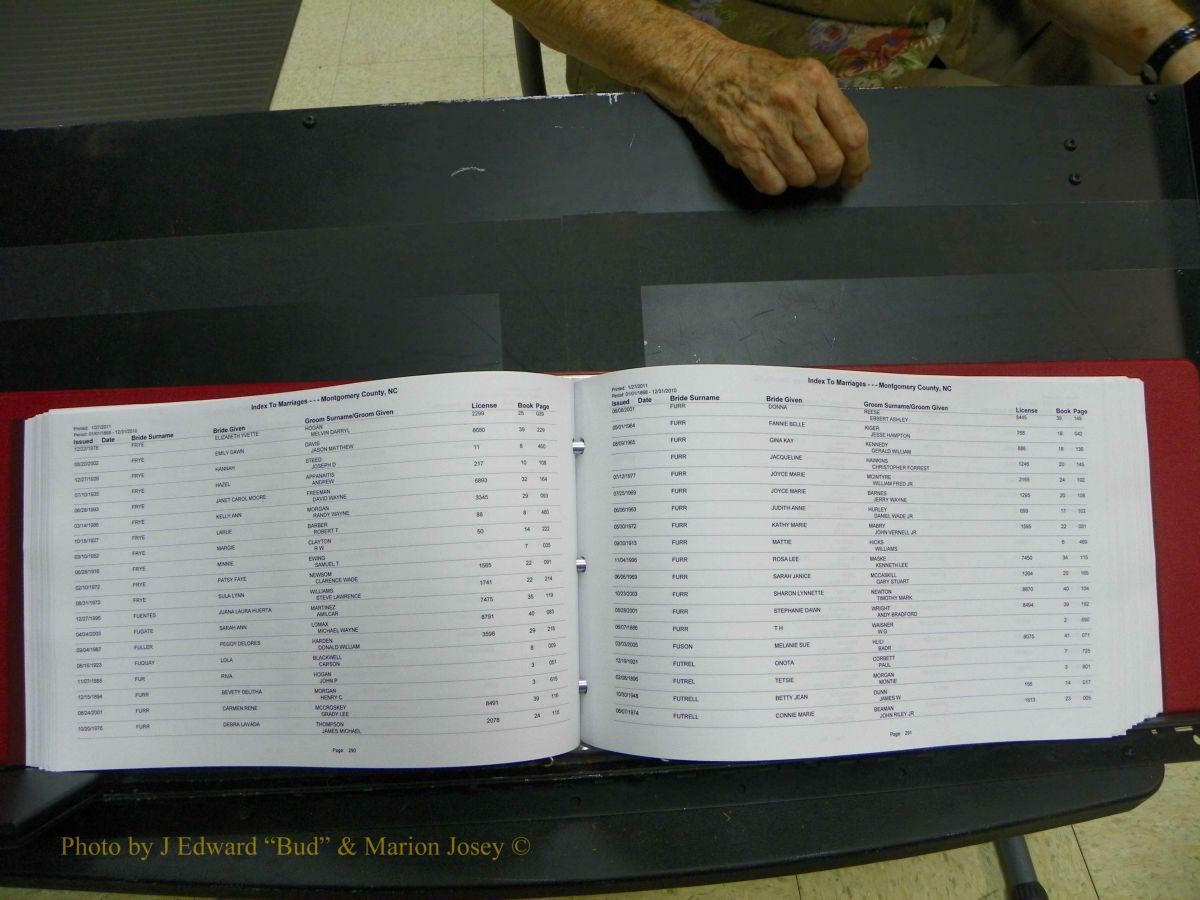 Index To Marriages - - - Montgomery County, NC
Printed: 1/27/2011
Period: 01/01/1868 - 12/31/2010
Issued Date Bride Surname Bride Given Groom Surname/Groom Given License Book Page
12/22/1978 FRYE ELIZABETH YVETTE HOGAN 2299 25 039
MELVIN DARRYL
08/20/2002 FRYE EMILY DAWN DAVIS 8680 39 229
JASON MATTHEW
12/27/1926 FRYE HANNAH STEED 11 8 460
JOSEPH D
07/10/1935 FRYE HAZEL APPANAITIS 217 10 108
ANDREW
06/28/1993 FRYE JANET CAROL MOORE FREEMAN 6893 32 164
DAVID WAYNE
03/14/1986 FRYE KELLY ANN MORGAN 3345 29 093
RANDY WAYNE
10/15/1927 FRYE LARUE BARBER 88 8 480
ROBERT T
03/10/1952 FRYE MARGIE CLAYTON 50 14 222
R W
06/28/1916 FRYE MINNIE EWING 7 035
SAMUEL T
02/10/1972 FRYE PATSY FAYE NEWSOM 1565 22 091
CLARENCE WADE
08/31/1973 FRYE SULA LYNN WILLIAMS 1741 22 214
STEVE LAWRENCE
12/27/1996 FUENTES JUANA LAURA HUERTA MARTINEZ 7475 35 119
AMILCAR
04/24/2003 FUGATE SARAH ANN LOMAX 8791 40 083
MICHAEL WAYNE
09/04/1987 FULLER PEGGY DELORES HARDEN 3598 29 218
DONALD WILLIAM
06/16/1923 FUQUAY LOLA BLACKWELL 8 009
CARSON
11/07/1888 FUR RIVA HOGAN 3 051
JOHN P
12/15/1894 FURR BEVETY DELITHA MORGAN 3 615
HENRY C
08/24/2001 FURR CARMEN RENE MCCROSKEY 8491 39 116
GRADY LEE
10/20/1976 FURR DEBRA LAVADA THOMPSON 2078 24 115
JAMES MICHAEL
Page: 290
Index To Marriages - - - Montgomery County, NC
Printed: 1/27/2011
Period: 01/01/1868 - 12/31/2010
Issued Date Bride Surname Bride Given Groom Surname/Groom Given License Book Page
06/08/2001 FURR DONNA REESE 8445 39 149
EBBERT ASHLEY
05/01/1964 FURR FANNIE BELLE KIGER 768 18 042
JESSE HAMPTON
08/09/1965 FURR GINA KAY KENNEDY 886 18 138
GERALD WILLIAM
FURR JACQUELINE HAWKINS 1246 20 145
CHRISTOPHER FORREST
07/12/1977 FURR JOYCE MARIE MCINTYRE 2165 24 192
WILLIAM FRED JR
07/25/1969 FURR JOYCE MARIE BARNES 1295 20 108
JERRY WAYNE
06/06/1963 FURR JUDITH ANNE HURLEY 17 102
DANIEL WADE JR
05/30/1972 FURR KATHY MARIE MABRY 1595 22 081
JOHN VERNELL JR
09/30/1913 FURR MATTIE HICKS 6 469
WILLIAMS
11/04/1996 FURR ROSA LEE MASKE 7450 34 115
KENNETH LEE
06/06/1969 FURR SARAH JANICE MCCASKILL 1264 20 165
GARY STUART
10/23/2003 FURR SHARON LYNNETTE NEWTON 8870 40 104
TIMOTHY MARK
08/28/2001 FURR STEPHANIE DAWN WRIGHT 8494 39 182
ANDY BRADFORD
06/07/1886 FURR T H WAISNER 2 690
W G
03/03/2005 FUSON MELANIE SUE HLILI 9075 41 071
BADR
12/19/1921 FUTREL ONOTA CORBETT 7 725
PAUL
02/08/1896 FUTREL TETSIE MORGAN 3 801
MONTIE
10/30/1948 FUTRELL BETTY JEAN DUNN 156 14 017
JAMES W
06/07/1974 FUTRELL CONNIE MARIE BEAMAN 1813 23 005
JOHN RILEY JR
Page: 291
Photo by J Edward “Bud” & Marion Josey ©